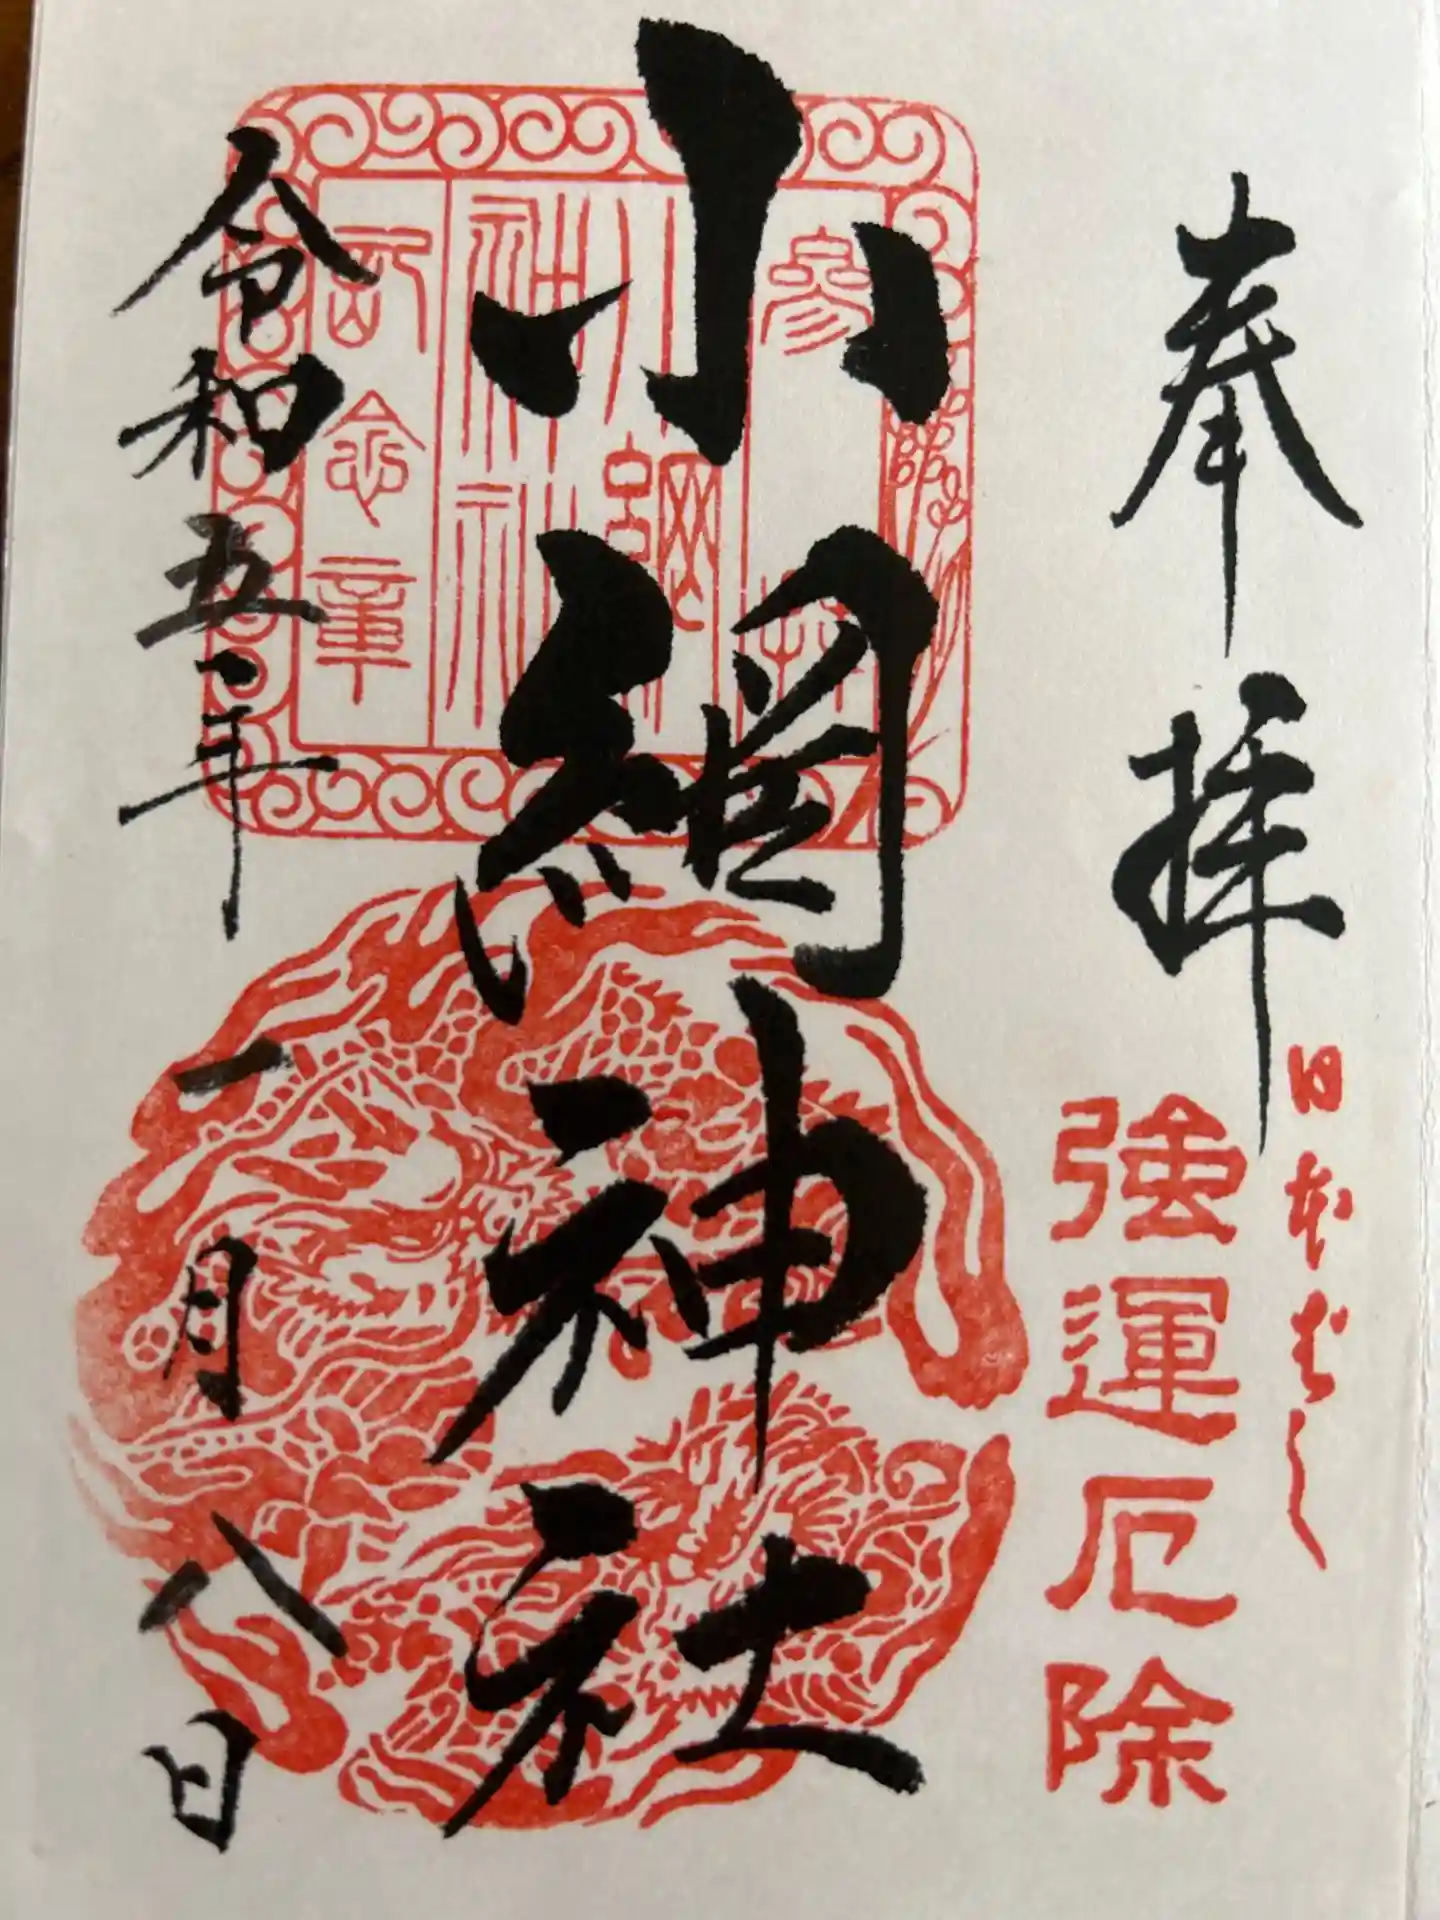 奉拝
日本ばし
強運厄除
小網神社
参拝
小網
神社
記念章
令和五年一月八日